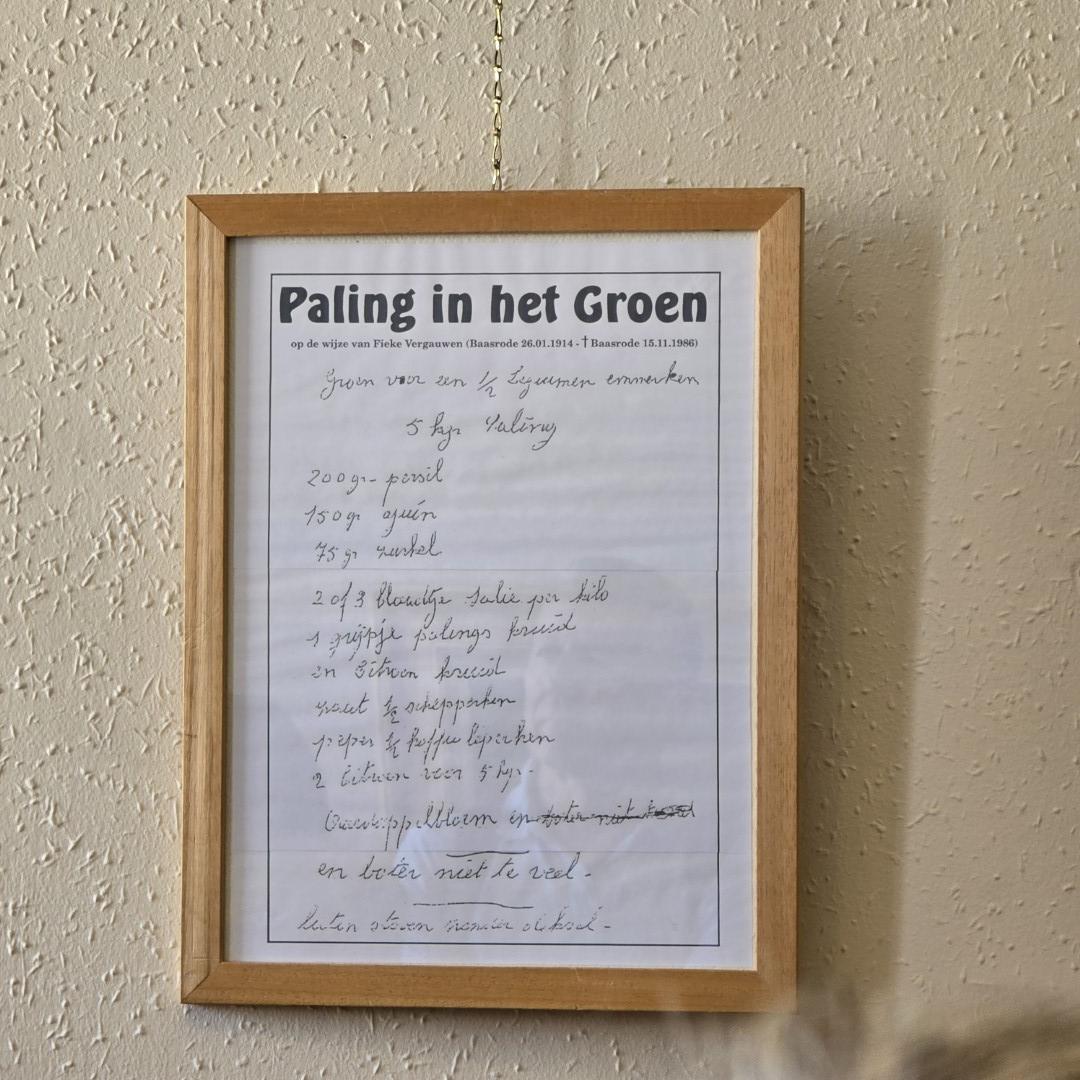 Paling in het Groen
op de wijze van Fieke Vergauwen (Baasrode 26.01.1914 - † Baasrode 15.11.1986)
Groen voor een 1/2 Legumen emmerken
5 kgr Paling
200 gr - persil
150 gr ajuin
75 gr zurkel
2 of 3 blaadtje Salie per kilo
1 grijpje palings kruid
en Citroen kruid
zout 1/2 schepperken
peper 1/2 koffie leperken
2 Citroen voor 5 kgr -
Aardappelbloem en boter niet
en boter niet te veel -
laten stoven zonder deksel -